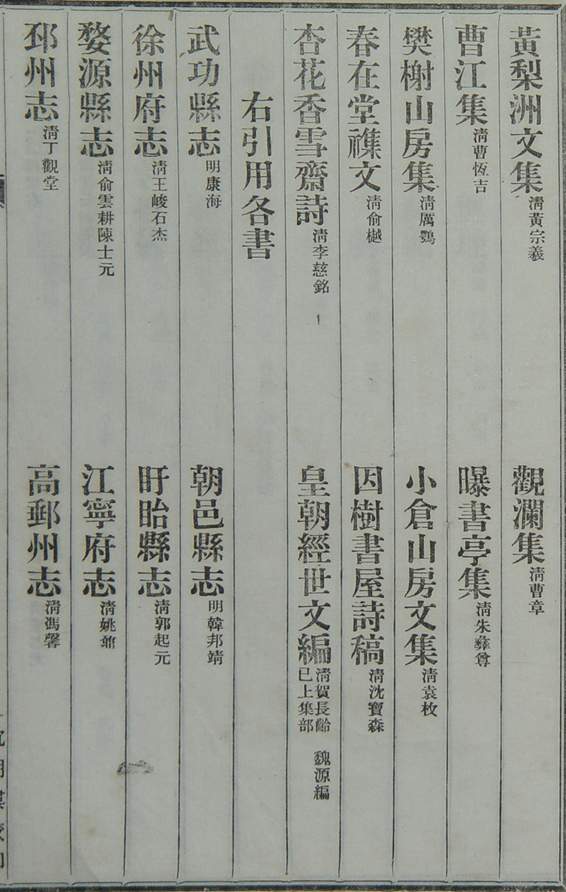 黃梨洲文集 清黃宗羲 觀瀾集 清曹章
曹江集 清曹恆吉 曝書亭集 清朱彝尊
樊榭山房集 清厲鶚 小倉山房文集 清袁枚
春在堂襍文 清俞樾 因樹書屋詩稿 清沈寶森
杏花香雪齋詩 清李慈銘 皇朝經世文編 清賀長齡 魏源編 已上集部
右引用各書
武功縣志 明康海 朝邑縣志 明韓邦靖
徐州府志 清王峻石杰 盱眙縣志 清郭起元
婺源縣志 清俞雲耕陳士元 江寧府志 清姚鼐
邳州志 清丁觀堂 高郵州志 清馮馨